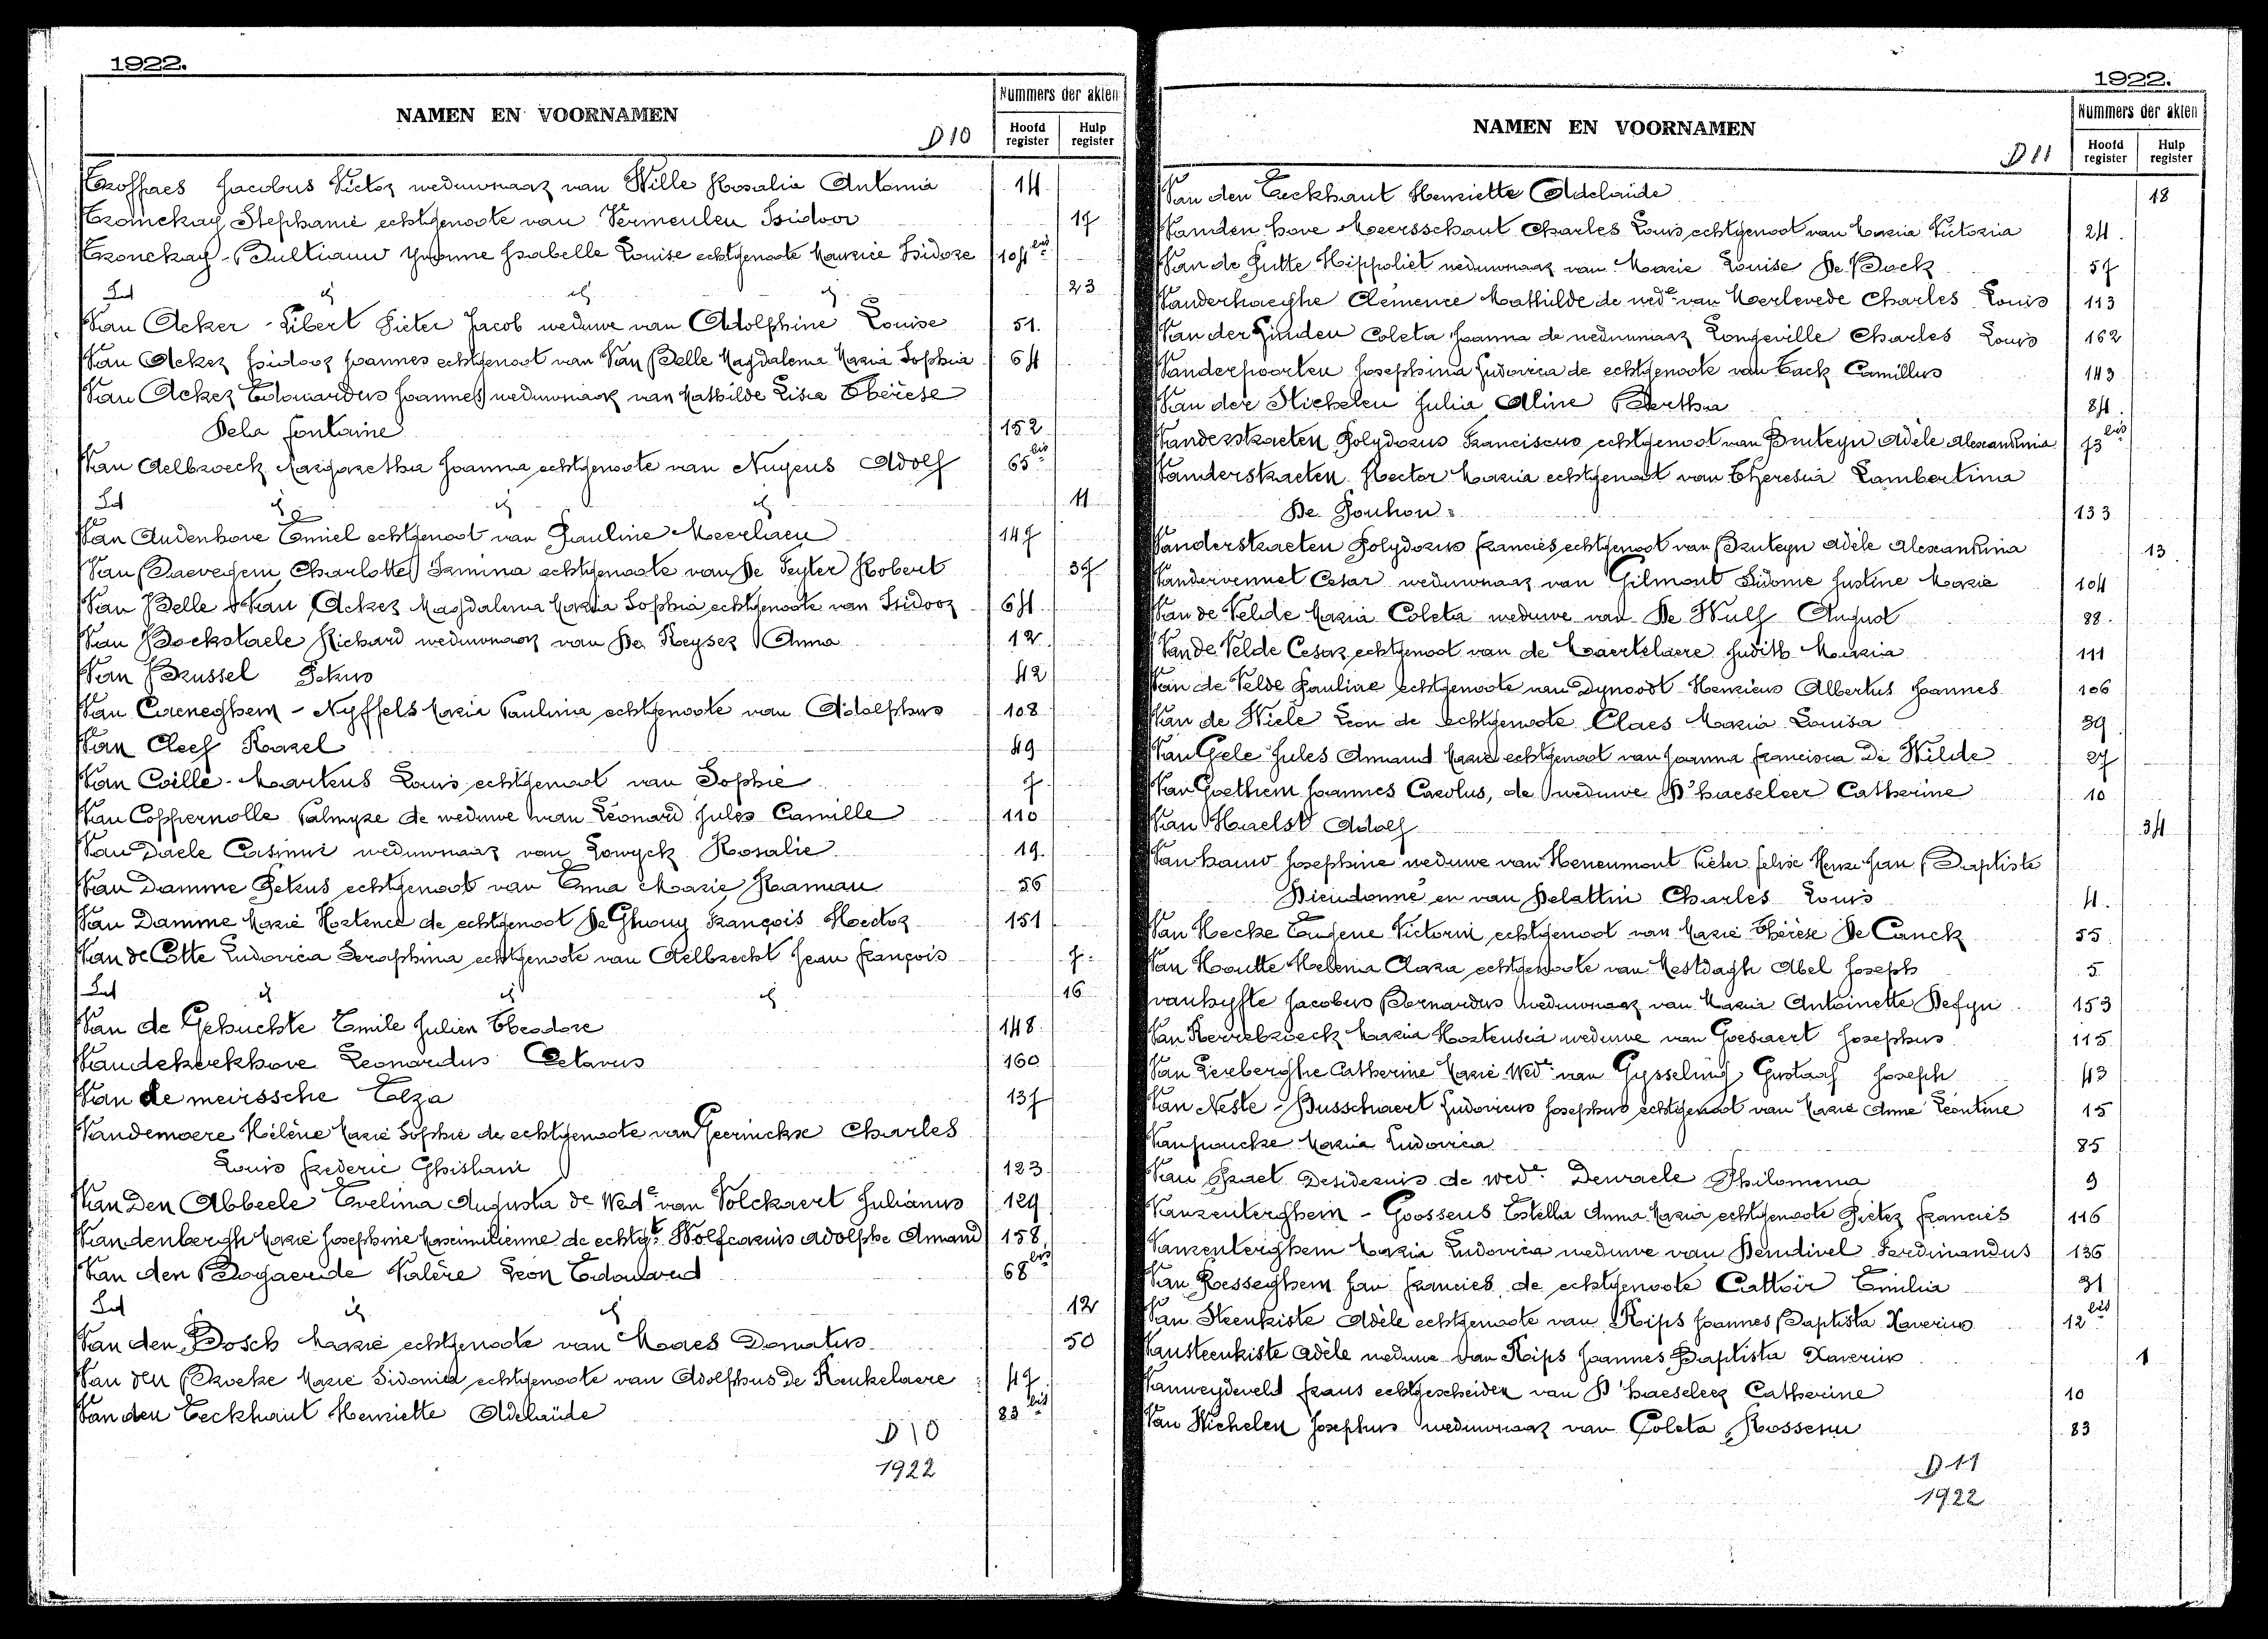 1922.
NAMEN EN VOORNAMEN
D 10
Nummers der akten
Hoofd register
Hulp register
Troffaes Jacobus Victor weduwnaar van Wille Rosalia Antonia 14
Tronckay Stephanie echtgenoote van Vermeulen Isidoor 17
Tronckay - Bultiauw Yvonne Isabelle Louise echtgenoote Maurice Isidore 104 bis
Id id id id 23
Van Acker - Libert Pieter Jacob weduwe van Adolphine Louise 51.
Van Acker Isidoor Joannes echtgenoot van Van Belle Magdalena Maria Sophia 64
Van Acker Edouardus Joannes weduwnaar van Mathilde Lisia Thérèse
Dela fontaine 152
Van Aelbroeck Margaretha Joanna echtgenoote van Nuyens Adolf 65 bis
Id id id id 11
Van Audenhove Emiel echtgenoot van Pauline Meerlaen 147
Van Baevegem Charlotte Irmina echtgenoote van De Seyter Robert 37
Van Belle & Van Acker Magdalena Maria Sophia echtgenoote van Isidoor 64
Van Bockstaele Richard weduwnaar van De Keyser Anna 12
Van Brussel Petrus 42
Van Caeneghem - Nyffels Maria Paulina echtgenoote van Adolphus 108
Van Cleef Karel 49
Van Coille - Martens Louis echtgenoot van Sophie 7
Van Coppernolle Palmyre de weduwe van Léonard Jules Camille 110
Van Daele Casimir weduwnaar van Lowyck Rosalie 19
Van Damme Petrus echtgenoot van Anna Marie Haaman 56
Van Damme Marie Hortence de echtgenoot De Ghouy François Hector 151
Van de Cotte Ludovica Seraphina echtgenoote van Aelbrecht Jean François 7
Id id id id 16
Van de Gehuchte Emile Julien Theodore 148
Vandekerkhove Leonardus Octavus 160
Van de meirssche Elza 137
Vandemoere Hélène Marie Sophie de echtgenoote van Geerinckx Charles
Louis frederic Ghislani 123
Van Den Abbeele Evelina Augusta de Wede van Volckaert Julianus 129
Vandenbergh Marie Josephine Maximilienne de echtgte Wolfcarius Adolphe Amand 158
Van den Bogaerde Valère Léon Edouard 68 bis
Id id id 12
Van den Bosch Marie echtgenoote van Maes Donatus 50
Van den Broeke Marie Sidonie echtgenoote van Adolphus De Keukelaere 47
Van den Eeckhaut Henriette Adelaïde 83 bis
D 10
1922
1922.
NAMEN EN VOORNAMEN
D 11
Nummers der akten
Hoofd register
Hulp register
Van den Eeckhaut Henriette Adelaïde 18
Vanden hove Meersschaut Charles Louis echtgenoot van Maria Victoria 24.
Van de Putte Hippoliet weduwnaar van Marie Louise De Bock 57
Vanderhaeghe Clémence Mathilde de wede van Merlevede Charles Louis 113
Van der Linden Coleta Joanna de weduwnaar Longeville Charles Louis 162
Vanderpoorten Josephina Ludovica de echtgenoote van Tack Camillus 143
Van der Stichelen Julia Aline Bertha 84.
Vanderstraeten Polydorus Franciscus echtgenoot van Bruteyn Adèle Alexandrina 73 bis
Vanderstraeten Hector Maria echtgenoot van Theresia Lambertina
De Pouhon 133
Vanderstraeten Polydorus francies echtgenoot van Bruteyn Adèle Alexandrina 13
Vandervennet Cesar weduwnaar van Gilmont Sidonie Justine Marie 104
Van de Velde Maria Coleta weduwe van De Wulf August 88.
Van de Velde Cesar echtgenoot van de Maertelaere Judith Maria 111
Van de Velde Pauline echtgenoote van Dynoodt Henricus Albertus Joannes 106
Van de Wiele Leon de echtgenoote Claes Maria Louisa 39
Van Gele Jules Amand Marie echtgenoot van Joanna francisca De Wilde 27
Van Goethem Joannes Carolus, de weduwe D'haeseleer Catherine 10
Van Haelst Adolf 34
Van hauw Josephine weduwe van Heneumont Pieter felix Henri Jean Baptiste
Dieudonné en van Delattin Charles Louis 4.
Van Hecke Eugene Victorin echtgenoot van Marie Thérèse De Canck 55
Van Houtte Helena Clara echtgenoote van Mestdagh Abel Joseph 5
vanhyfte Jacobus Bernardus weduwnaar van Maria Antoinette Defyn 153
Van Kerrebroeck Maria Hortensia weduwe van Goesaert Josephus 115
Van Lereberghe Catherine Marie Wede van Gysseling Gustaaf Joseph 43
Van Neste - Busschaert Ludovicus Josephus echtgenoot van Marie Anne Léontine 15
Vanpoucke Maria Ludovica 85
Van Praet Desiderius de wede Dewaele Philomena 9
Vanrenterghem - Goossens Estella Anna Maria echtgenoote Pieter francies 116
Vanrenterghem Maria Ludovica weduwe van Demdivel Ferdinandus 136
Van Rosseghem Jan francies de echtgenoote Cattoir Emilia 31
Van Steenkiste Adèle echtgenoote van Rips Joannes Baptista Xaverius 12 bis
Vansteenkiste Adèle weduwe van Rips Joannes Baptista Xaverius 1
Vanweydeveld frans echtgescheiden van D'haeseleer Catherine 10
Van Wichelen Josephus weduwnaar van Coleta Rosseeuw 83
D 11
1922